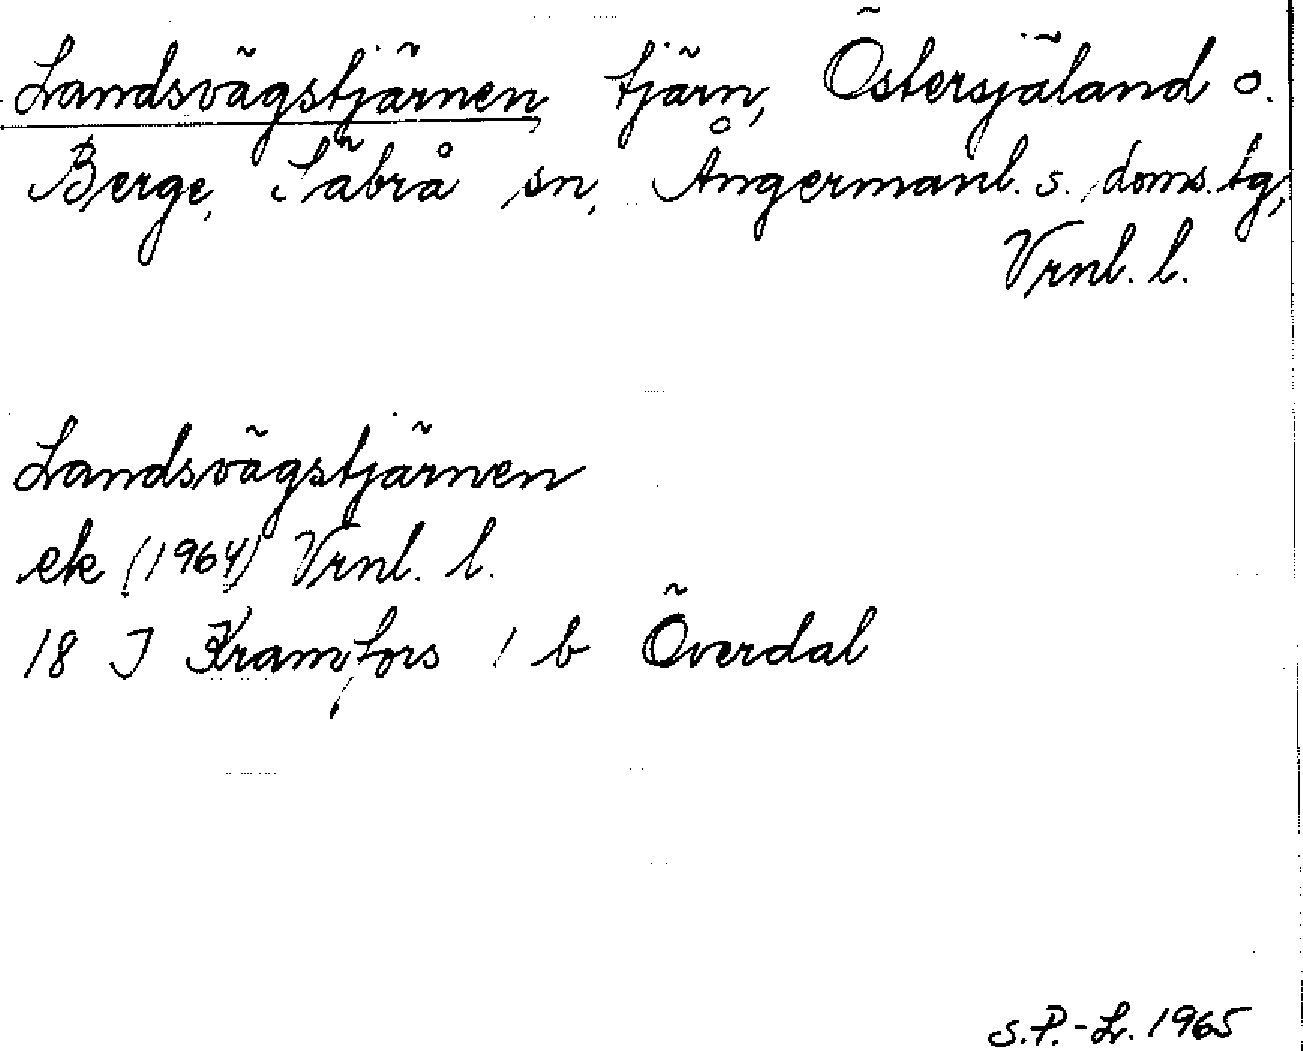 Landsvägstjärnen tjärn, Östersjäland o.
Berge, Säbrå sn, Ångermanl. s. doms. tg,
Vrnl. l.
Landsvägstjärnen
ek (1964) Vrnl. l.
18 J Kramfors 1 b Överdal
S.P.-Lr. 1965